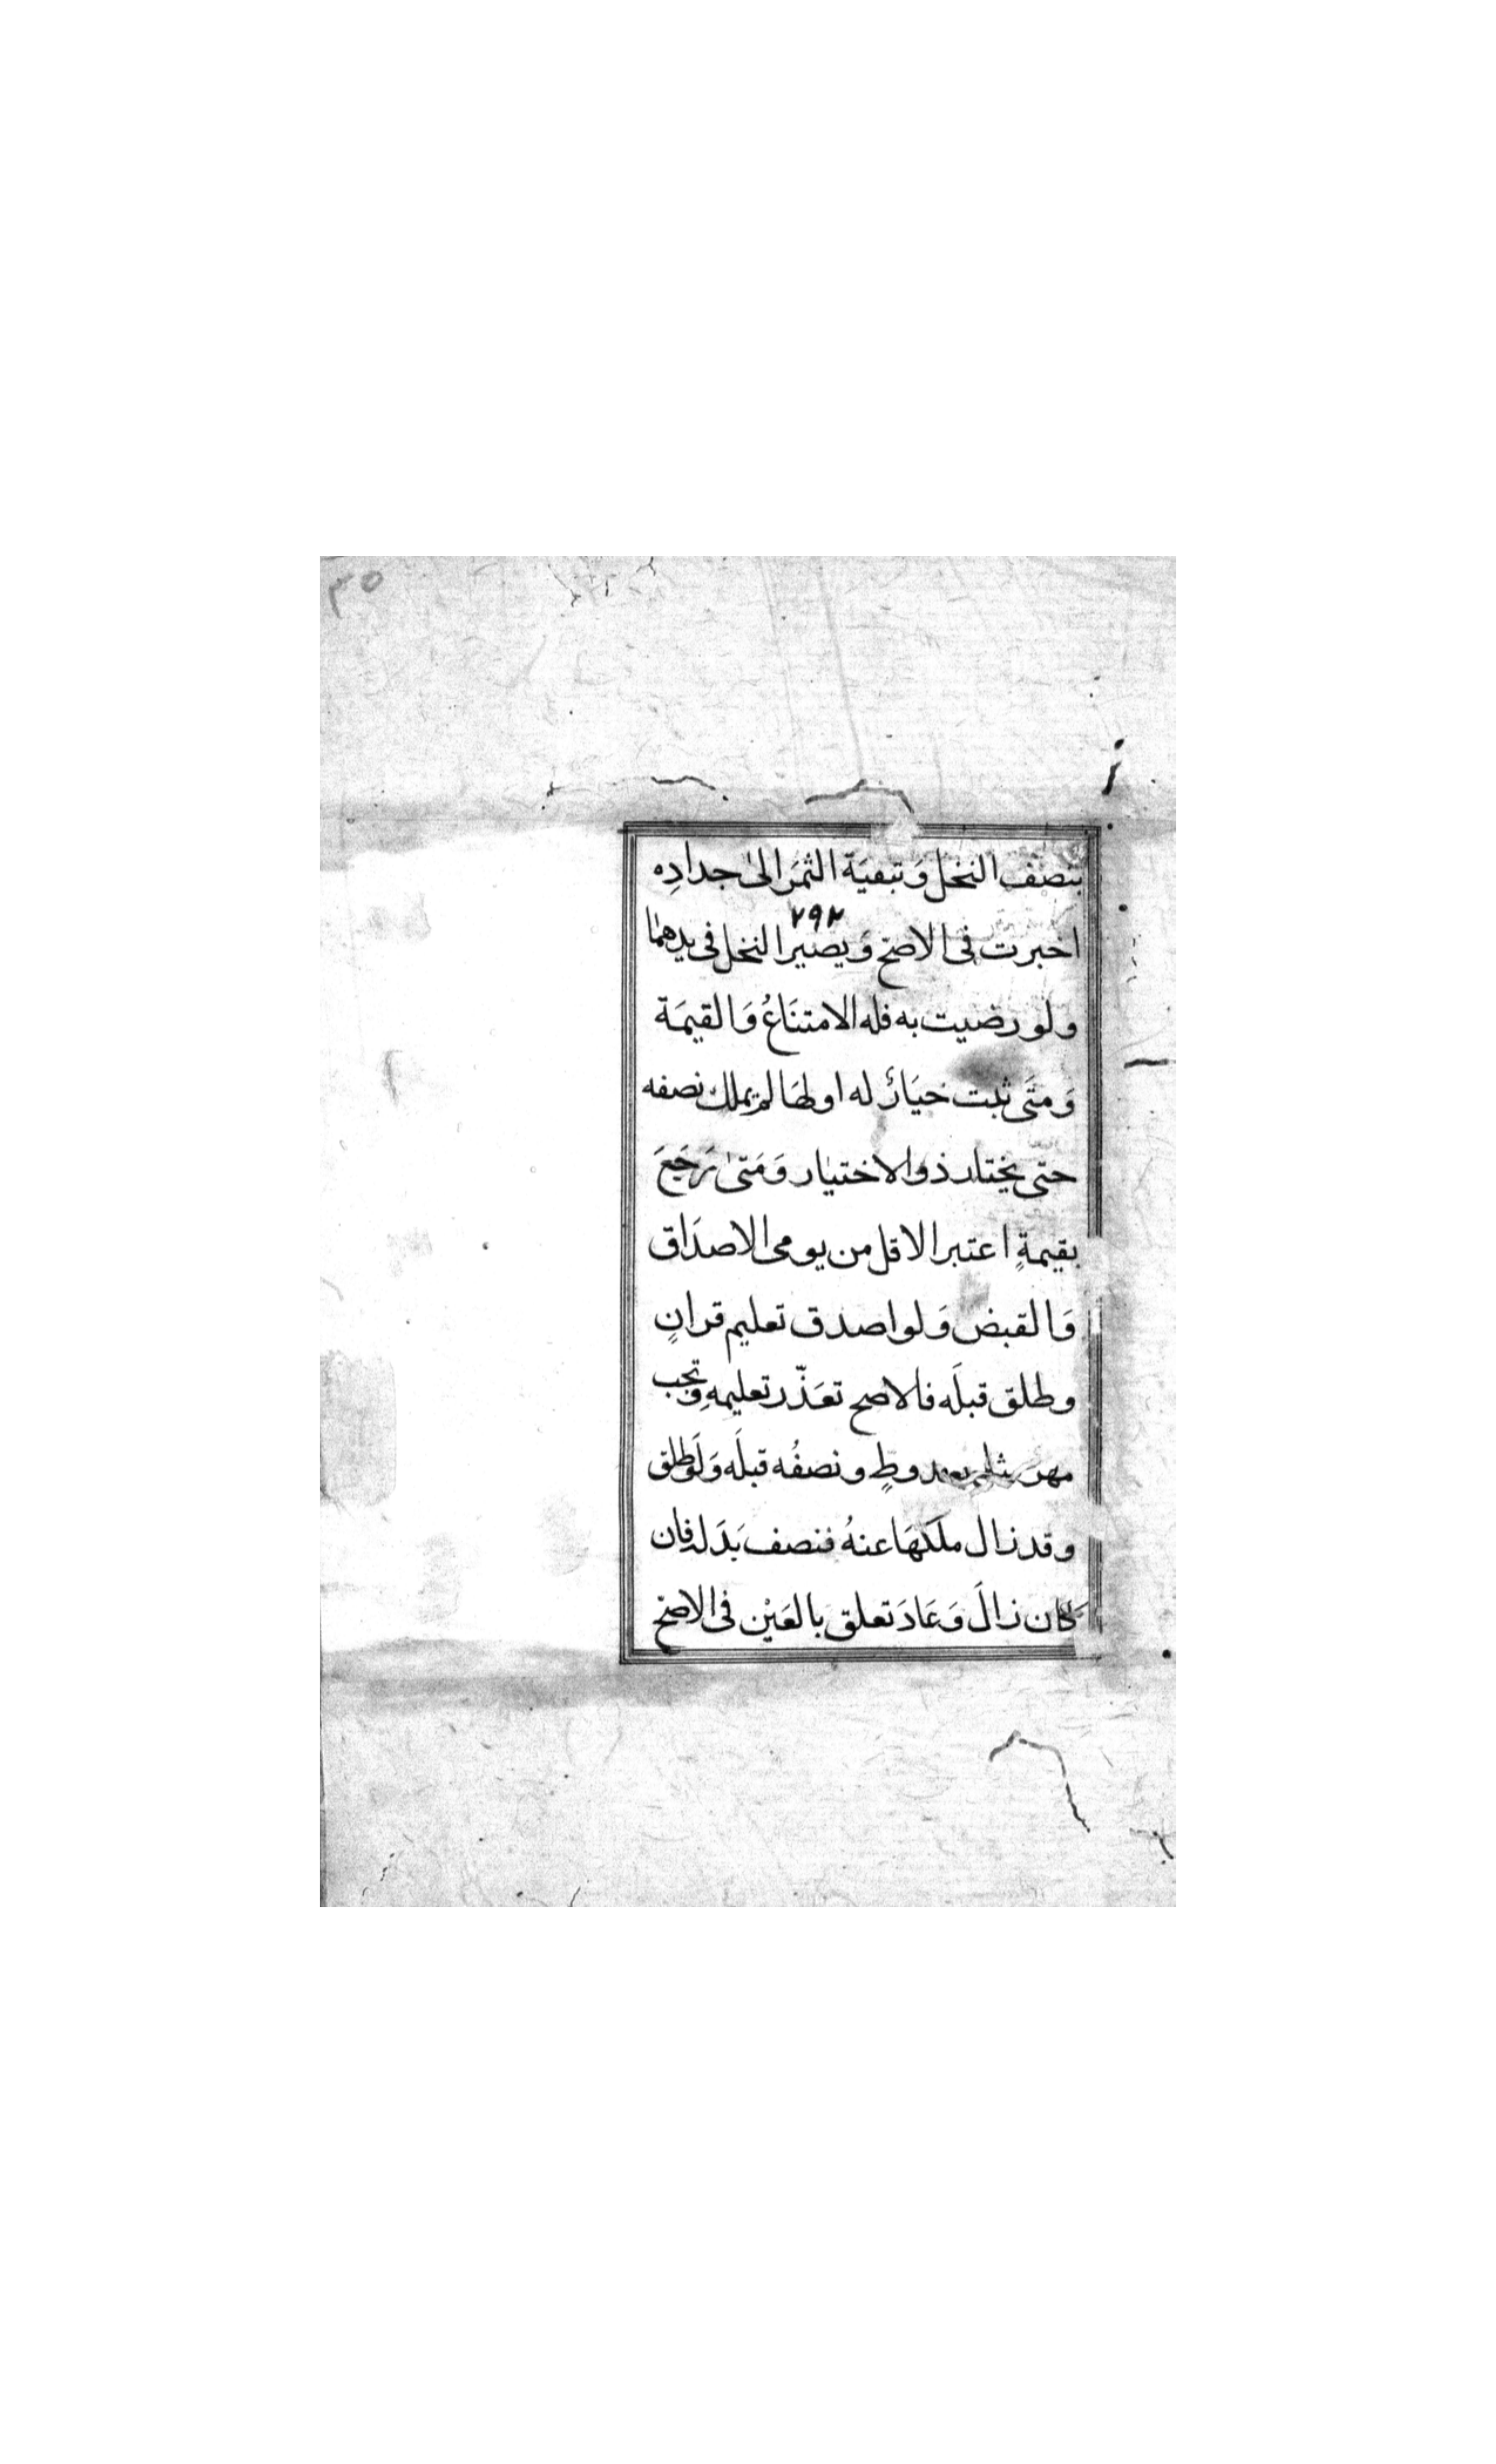 ٣٥
بنصف النخل وَتبقيَة الثمَر الىٰ جدادِه
٢٩٢
اخبرت فى الاصح وَيصير النخل فى يدهما
ولو رضيت به فله الامتنَاعُ وَالقيمَة
وَمتَى ثبت خيَارٌ له اولهَا لم يملك نصفه
حتى يختار ذو الاختيار وَمَتىٰ رَجَعَ
بقيمةٍ اعتبر الاقل من يومى الاصدَاق
وَالقبض وَلو اصدق تعليم قرانٍ
وطلق قبلَه فالاصح تعَذّر تعليمهِ وتجب
مهر مثلٍ بعد وطٍ ونصفُه قبلَه وَلَو طلق
وقد زال ملكهَا عنهُ فنصف بَدَله فان
كان زالَ وَعَادَ تعلق بالعَيْن فى الاصح